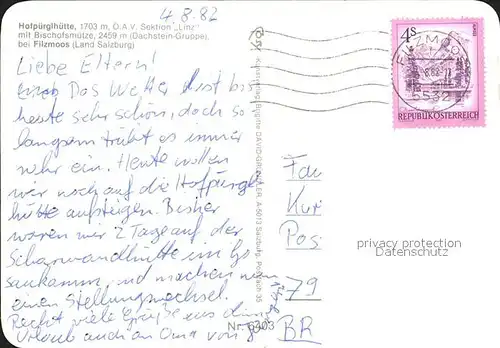 4.8.82
Hofpürglhütte, 1703 m, Ö.A.V. Sektion „Linz"
mit Bischofsmütze, 2459 m (Dachstein-Gruppe),
bei Filzmoos (Land Salzburg)
Liebe Eltern!
Das Wetter ist bis
heute sehr schön, doch so
langsam trübt es immer
mehr ein. Heute wollen
wir noch auf die Hofpürgl-
hütte aufsteigen. Bisher
waren wir 2 Tage auf der
im Go
saukamm, und machen nun
einen Stellungswechsel.
Recht viele Grüße aus dem
Urlaub auch an Oma von
4S
FILZMOOS
8.82
5532
REPUBLIK ÖSTERREICH
Brigitte DAVID-GRUBER, A-5013 Salzburg, Postfach 35
Nr. 6303
Fam
Kur
Pos
79
BR
privacy protection
Datenschutz